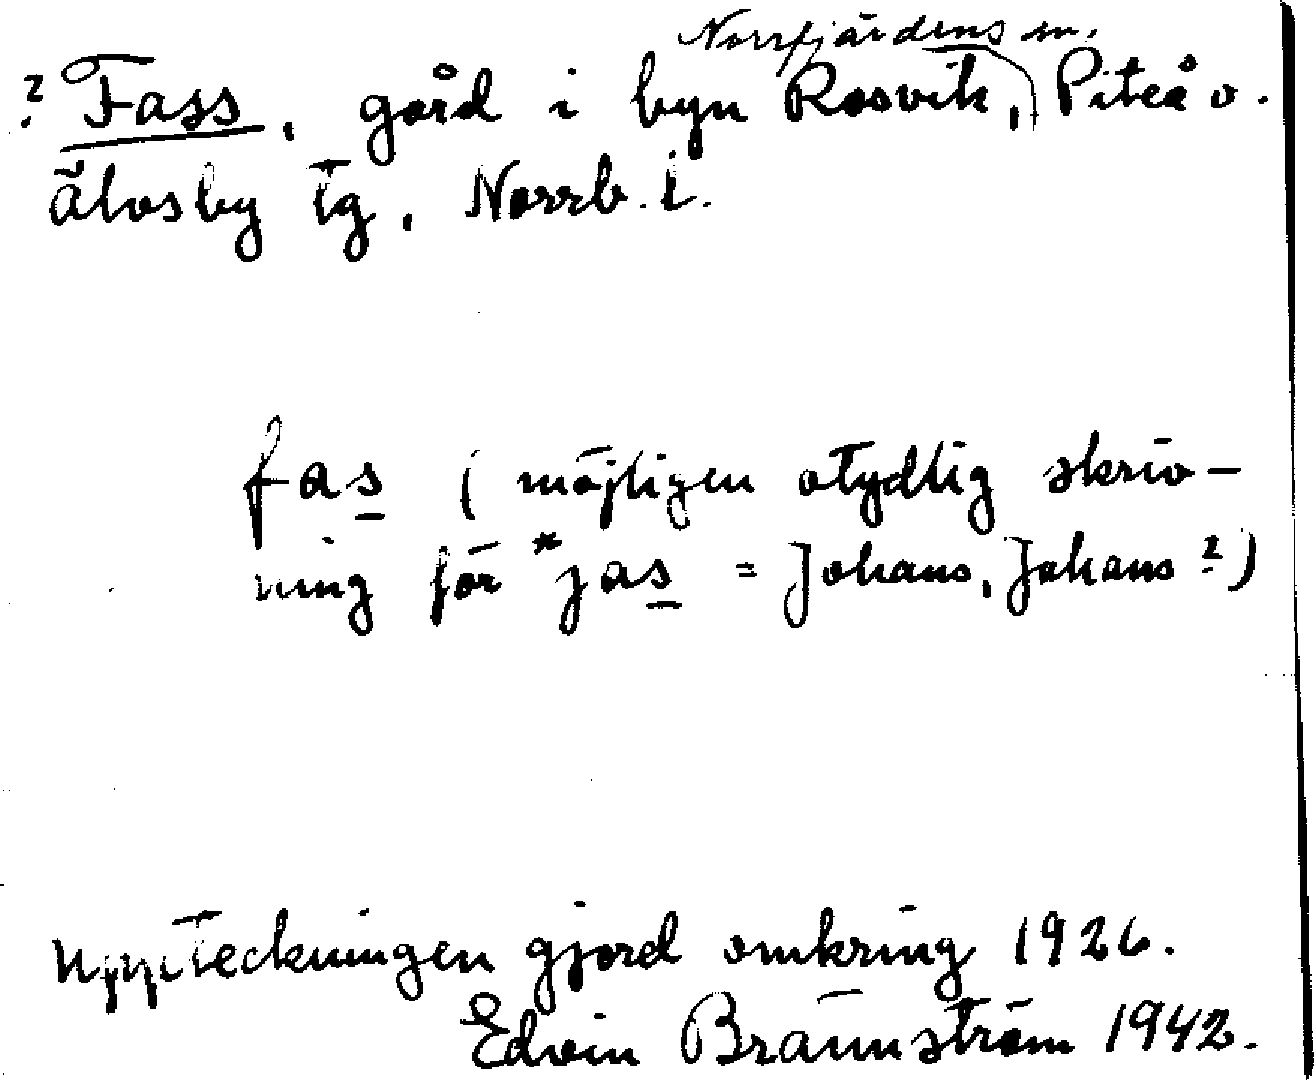 Norrfjärdens sn.
? Fass, gård i byn Rosvik, Piteå o.
älvsby tg, Norrb. l.
fas (möjligen otydlig skriv-
ning för *jas = Johans, Johans?)
Uppteckningen gjord omkring 1926.
Edvin Brännström 1942.